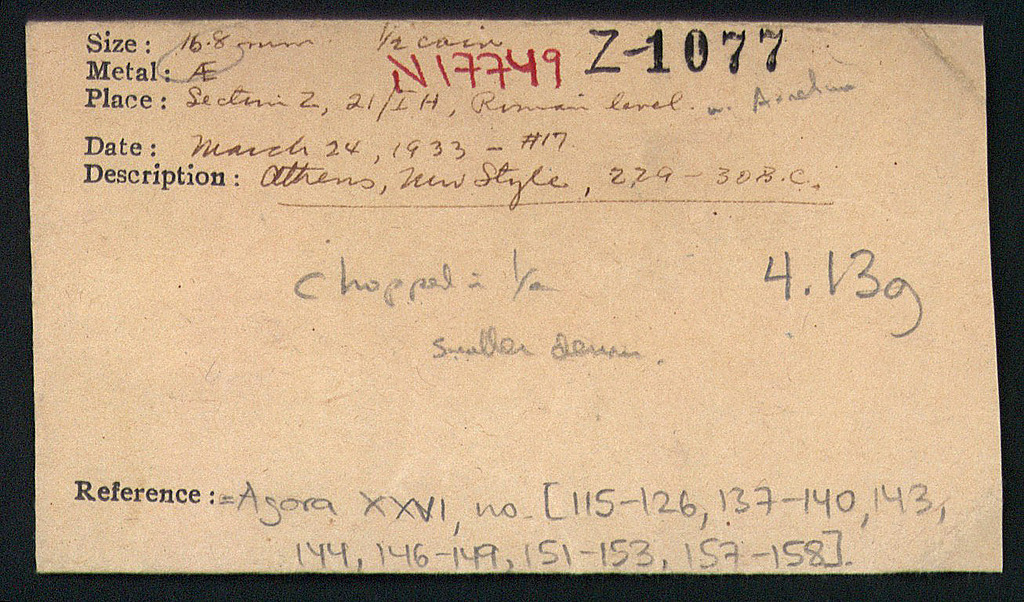 Size: 16.8 mm 1/2 coin N 17749 Z-1077
Metal: Æ
Place: Section Z, 21/IH, Roman level. w. Aurelian
Date: March 24, 1933 - #17
Description: Athens, New Style, 229-30 B.C.
Chopped in 1/2 4.13g
smaller denom.
Reference: =Agora XXVI, no. [115-126, 137-140, 143,
144, 146-149, 151-153, 157-158].